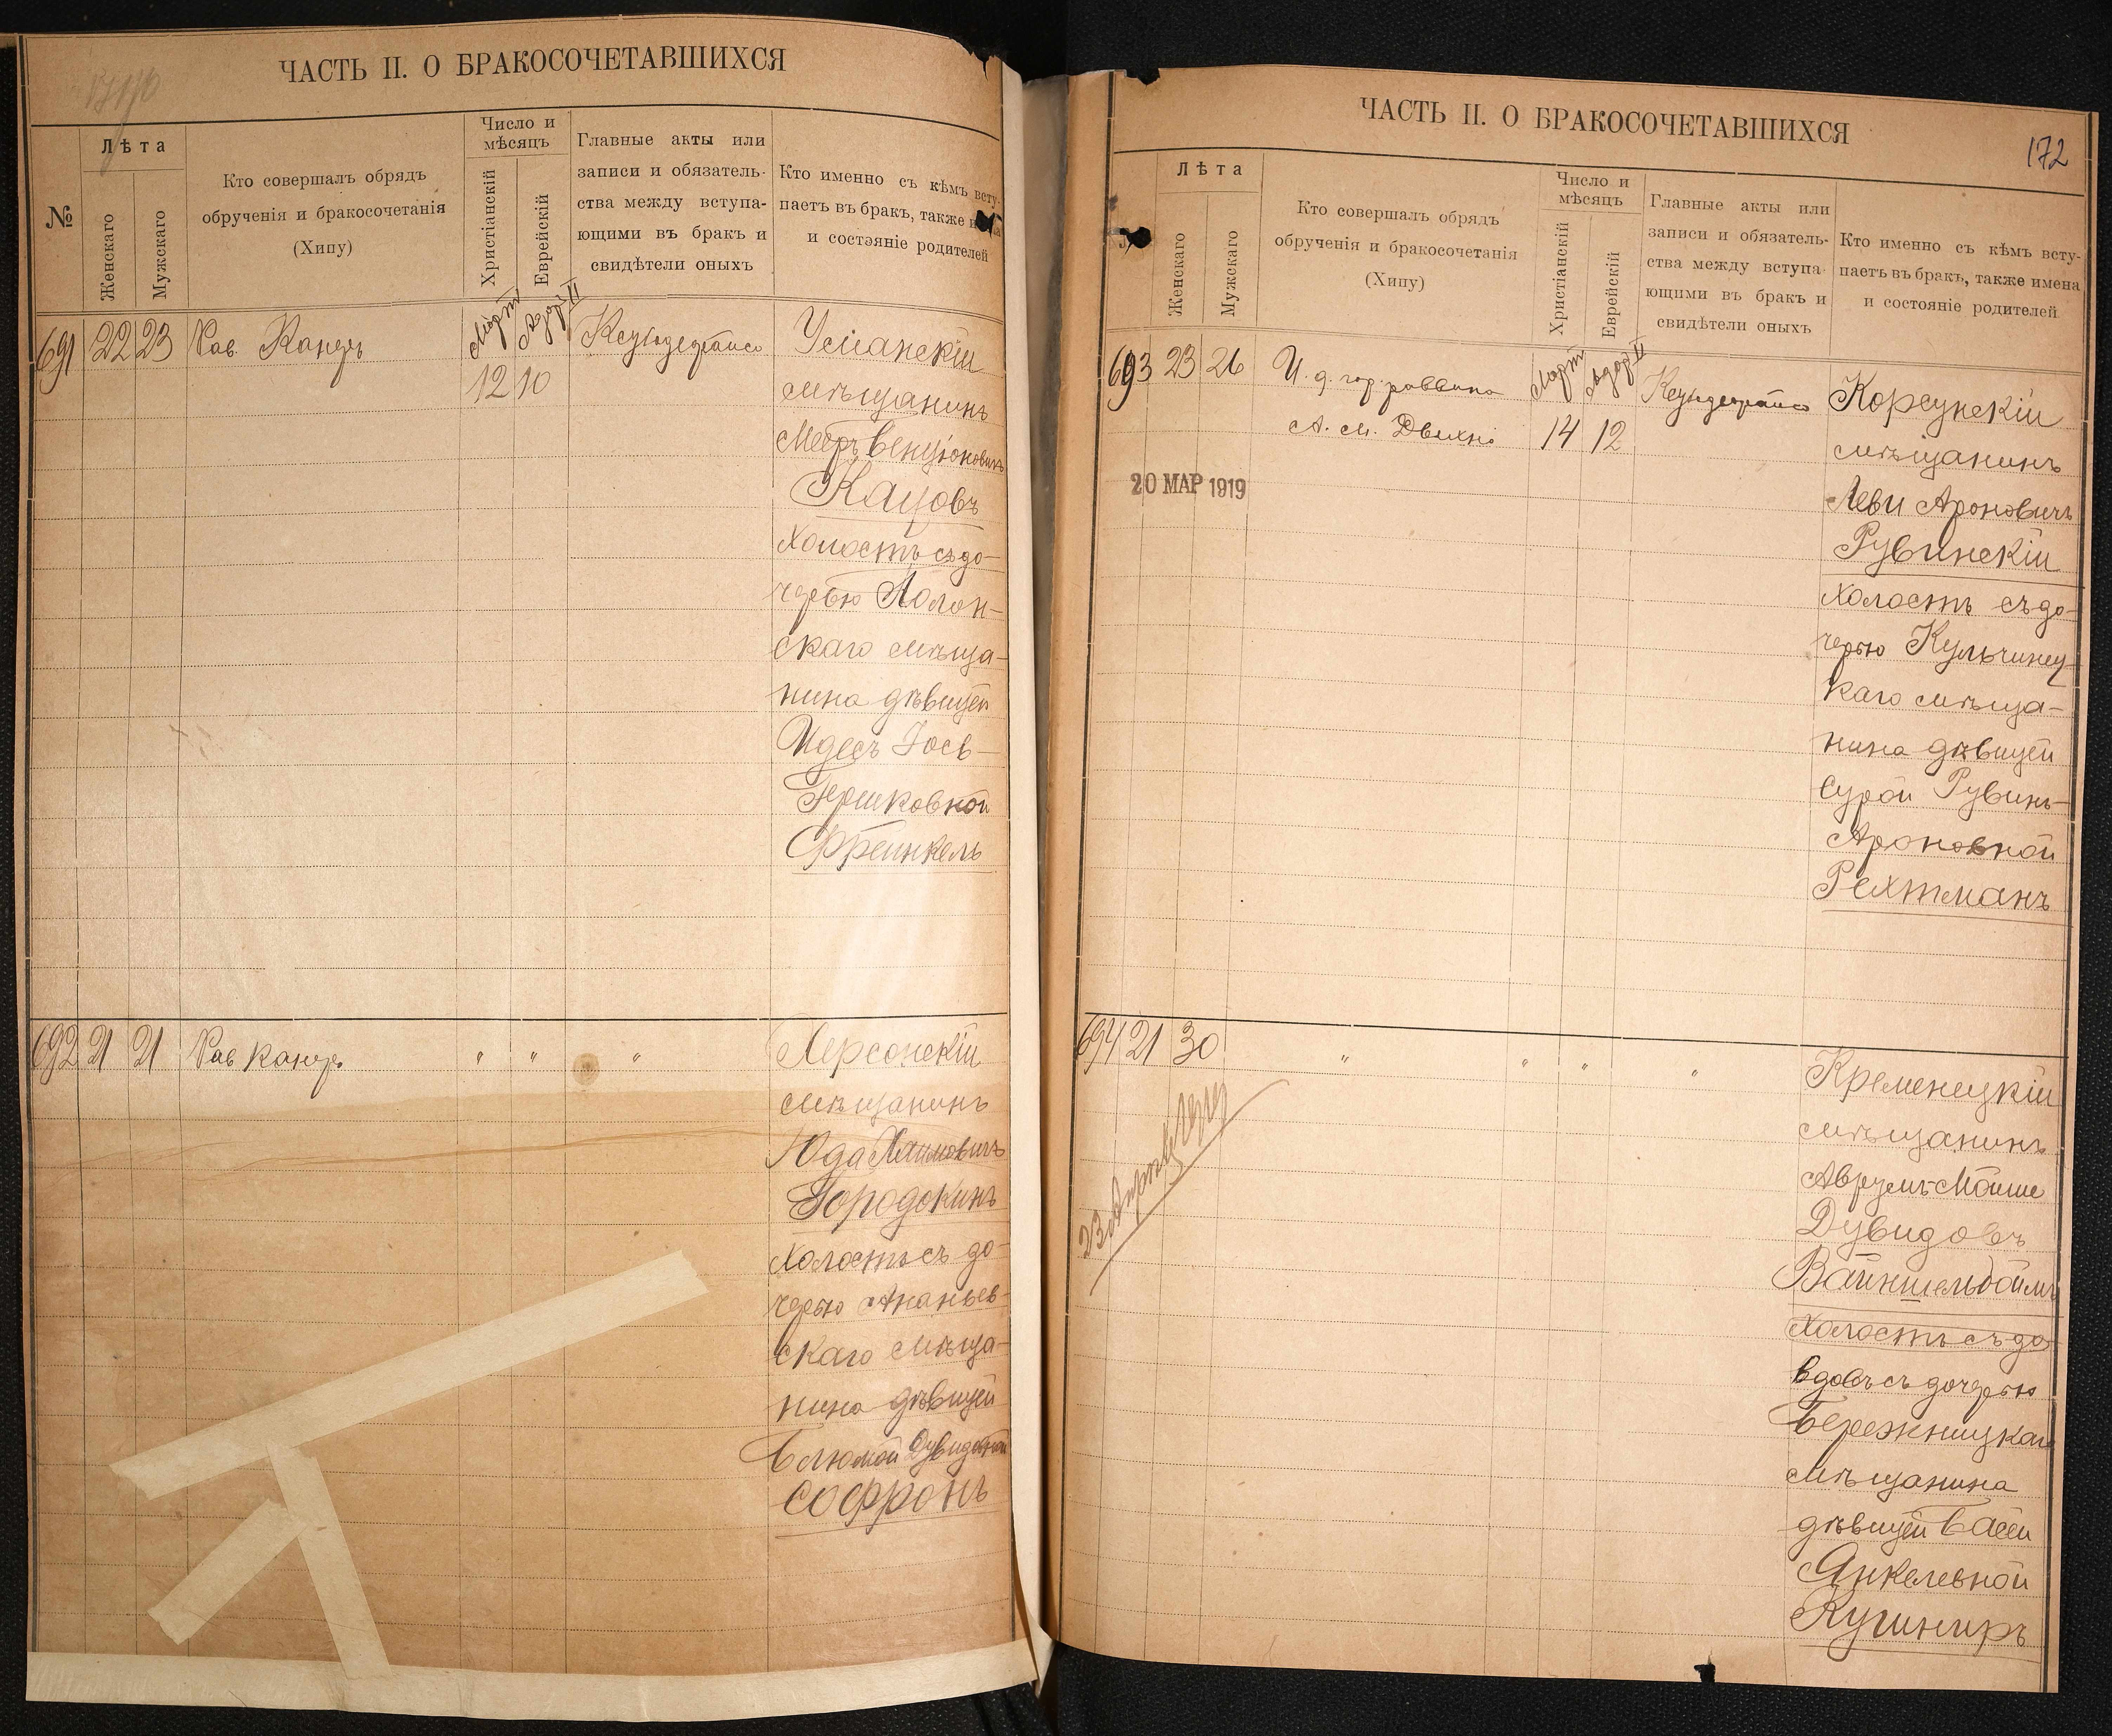 ЧАСТЬ II. О БРАКОСОЧЕТАВШИХСЯ
№
Лѣта
Женскаго
Мужскаго
Кто совершалъ обрядъ
обрученія и бракосочетанія
(Хипу)
Число и
мѣсяцъ
Христіанскій
Еврейскій
Главные акты или
записи и обязатель-
ства между вступа-
ющими въ бракъ и
свидѣтели оныхъ
Кто именно съ кѣмъ всту-
паетъ въ бракъ, также
и состояніе родителей
691 22 23 Рав. Канеръ
Мартъ Адаръ II
12 10
Усманскій
мѣщанинъ
Мееръ Бенціоновичъ
Кацовъ
холостъ съ до-
черью Полон-
скаго мѣща-
нина дѣвицей
Идесъ Іось-
Гершковной
Френкель
692 21 21 Рав Канеръ " " "
Херсонскій
мѣщанинъ
Юда Хаимовичъ
Городокинъ
холостъ съ до-
черью Ананьев-
скаго мѣща-
нина дѣвицей
Блюмой Дувидовной
Софронъ
ЧАСТЬ II. О БРАКОСОЧЕТАВШИХСЯ
172
Лѣта
Женскаго
Мужскаго
Кто совершалъ обрядъ
обрученія и бракосочетанія
(Хипу)
Число и
мѣсяцъ
Христіанскій
Еврейскій
Главные акты или
записи и обязатель-
ства между вступа-
ющими въ бракъ и
свидѣтели оныхъ
Кто именно съ кѣмъ всту-
паетъ въ бракъ, также имена
и состояніе родителей
693 23 26 И. д. гор. раввина
А. М. Двихнъ
Мартъ Адаръ II
14 12
20 МАР 1919
Корсунскій
мѣщанинъ
Леви Ароновичъ
Рувинскій
холостъ съ до-
черью Кульчинец-
каго мѣща-
нина дѣвицей
Сурой Рувинъ-
Ароновной
Рехтманъ
694 21 30 " " " "
Кременецкій
мѣщанинъ
Аврумъ-Мойше
Дувидовъ
Вайншельбоймъ
холостъ съ до
вдовъ съ дочерью
Бережницкаго
мѣщанина
дѣвицей Басей
Янкелевной
Кушниръ